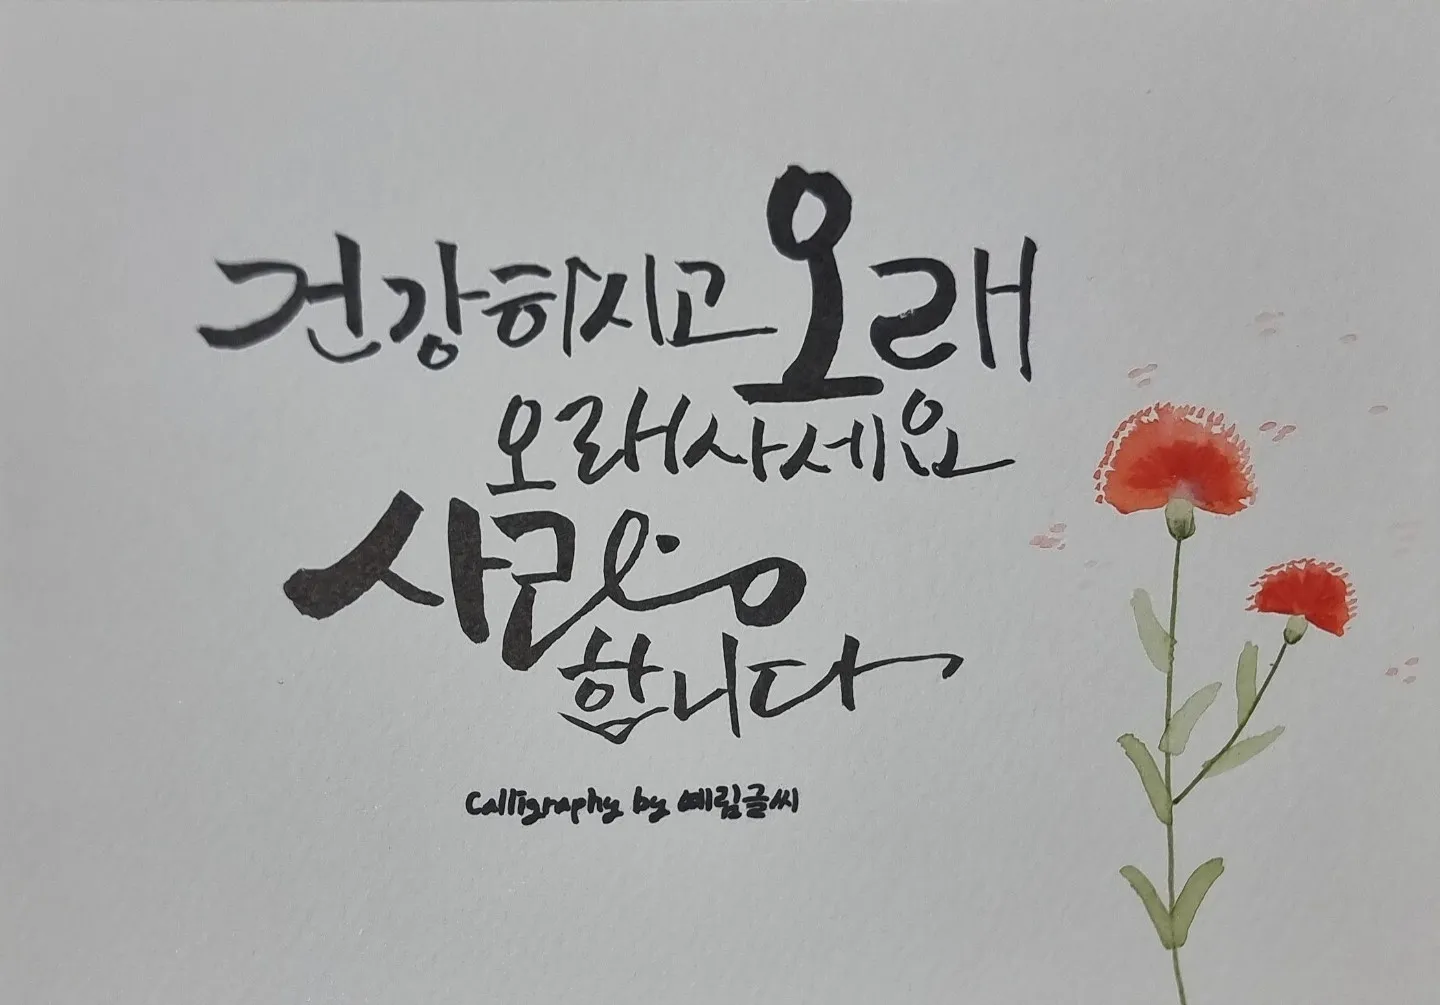 건강하시고 오래
오래사세요
사랑
합니다
Calligraphy by 예림글씨